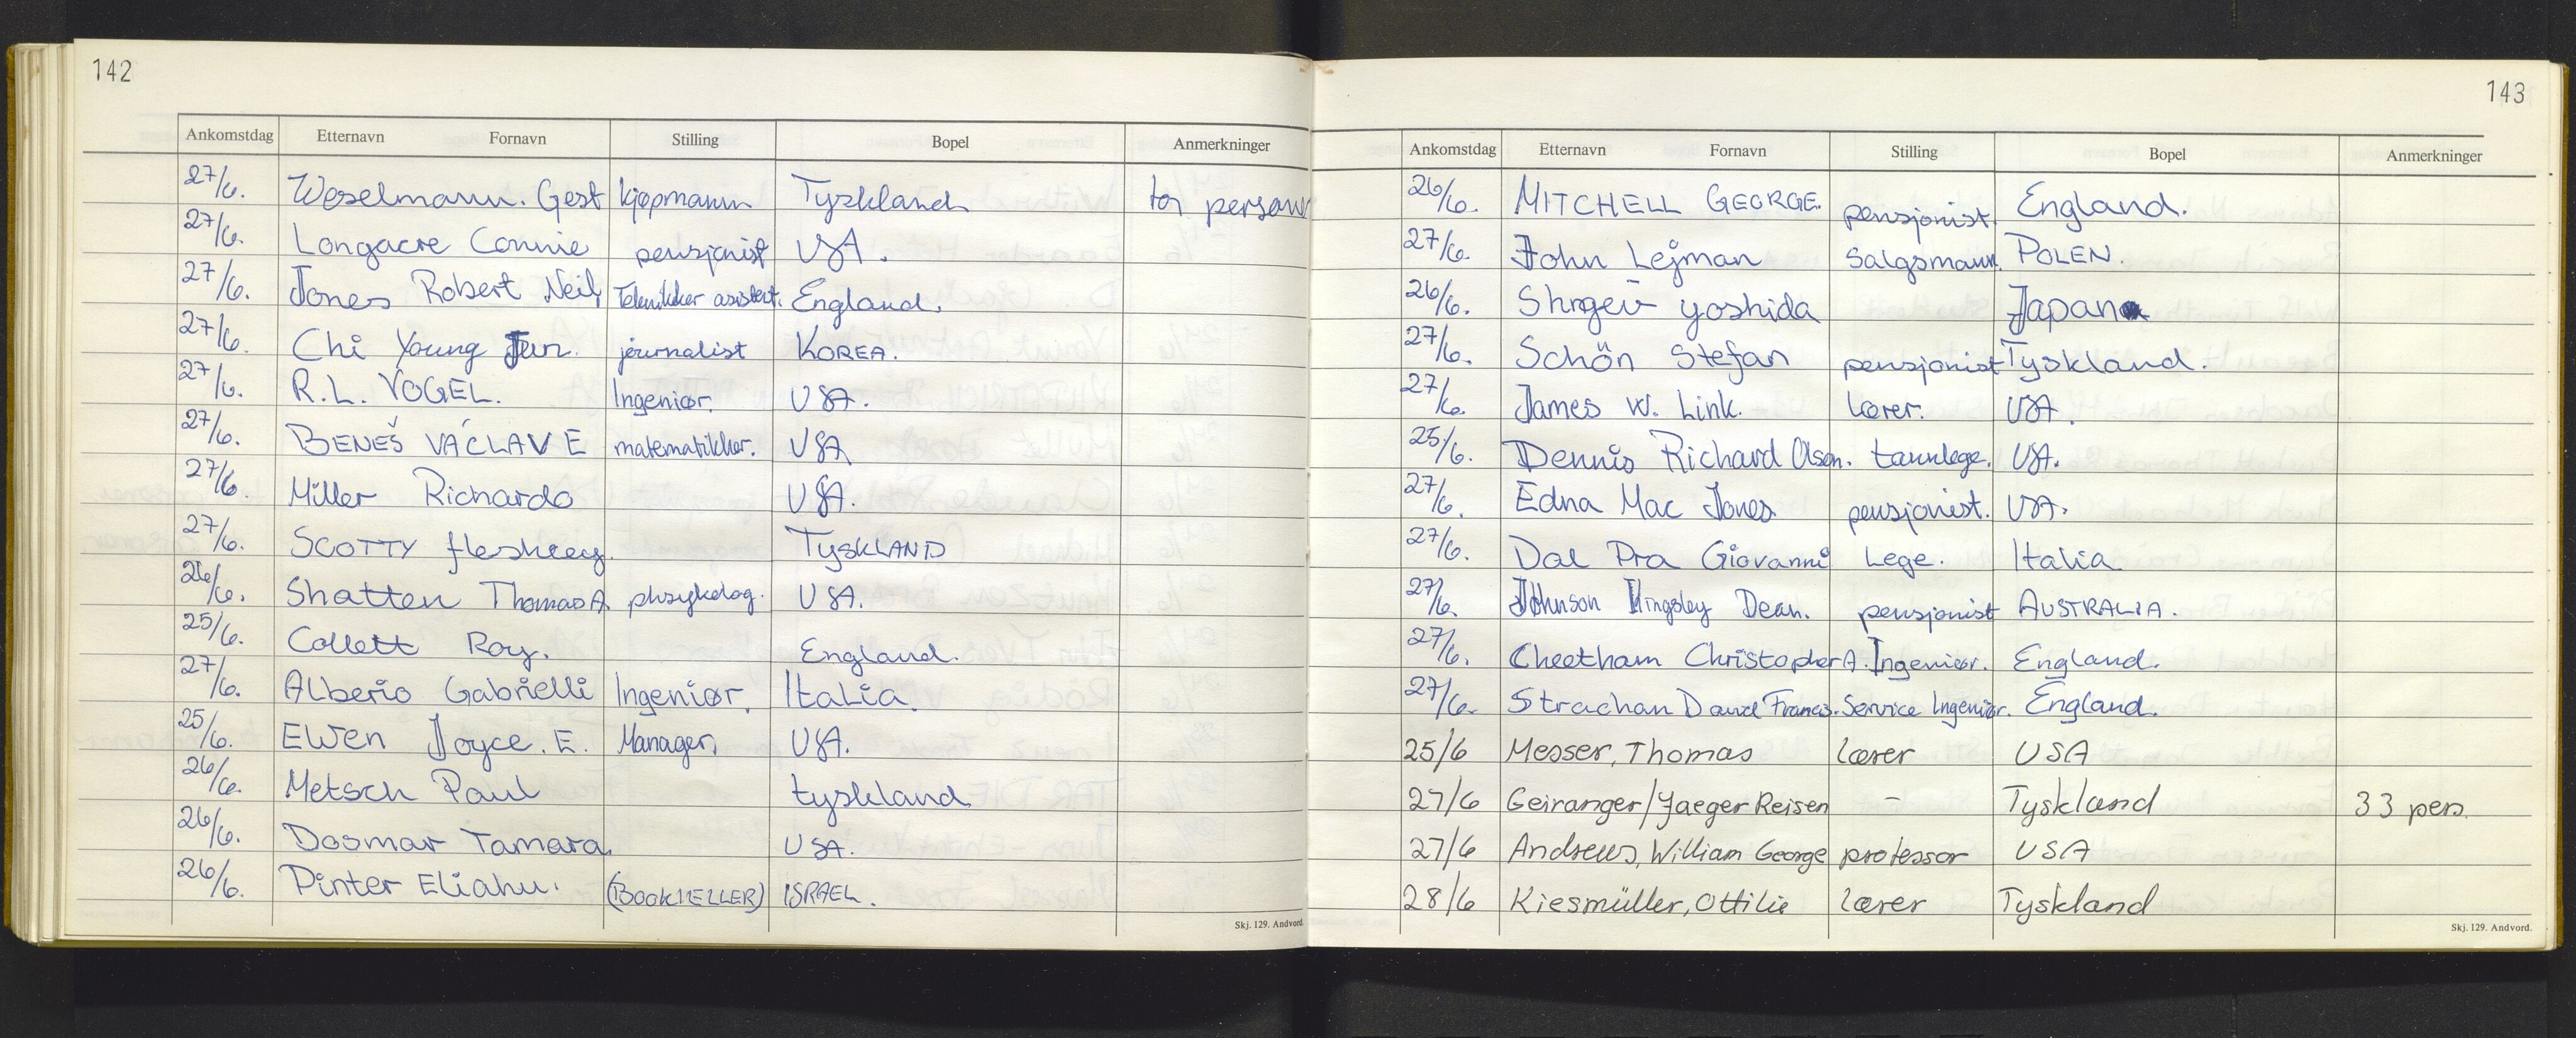 142
Ankomstdag Etternavn Fornavn Stilling Bopel Anmerkninger
27/6. Weselmann. Gest kjøpmann Tyskland
27/6. Longacre Connie pensjonist USA.
27/6. Jones Robert Neil, Teknikker asistent. England.
27/6. Chi Young Jun. journalist KOREA.
27/6. R.L. VOGEL. Ingeniør. USA.
27/6. BENEŠ VÁCLAV E matematikker. USA
27/6. Miller Richardo USA.
27/6. SCOTTY TYSKLAND
26/6. Shatten Thomas A. USA.
25/6. Collett Roy. England.
27/6. Alberio Gabrielli Ingeniør. Italia.
25/6. EWen Joyce. E. Manager. USA.
26/6. Metsch Paul tyskland
26/6. Dosmar Tamara. USA.
26/6. Pinter Eliahu. (BOOKSELLER) ISRAEL.
Skj. 129. Andvord.
143
Ankomstdag Etternavn Fornavn Stilling Bopel Anmerkninger
26/6. MITCHELL GEORGE. pensjonist. England.
27/6. John Lejman Salgsmann. POLEN.
26/6. yoshida Japan
27/6. Schön Stefan pensjonist Tyskland.
27/6. James W. Link. Lærer. USA.
25/6. Dennis Richard Olson. tannlege. USA.
27/6. Edna Mac Jones pensjonist. USA.
27/6. Dal Pra Giovanni Lege. Italia
27/6. Johnson Kingsley Dean. pensjonist AUSTRALIA.
27/6. Cheetham Christopher A. Ingeniør. England.
27/6. Strachan David Francis. Service Ingeniør. England.
25/6 Messer, Thomas lærer USA
27/6 Geiranger/Jaeger Reisen - Tyskland 33 pers.
27/6 Andrews, William George professor USA
28/6 Kiesmüller, Ottilie lærer Tyskland
Skj. 129. Andvord.